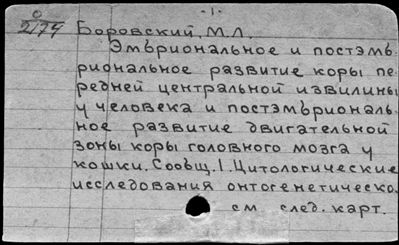 - 1 -
2174 Боровский, М.Л.
Эмбриональное и постэмб-
риональное развитие коры пе-
редней центральной извилины
у человека и постэмбриональ-
ное развитие двигательной
зоны коры головного мозга у
кошки. Сообщ. 1. Цитологические
исследования онтогенетическо.
см. след. карт.